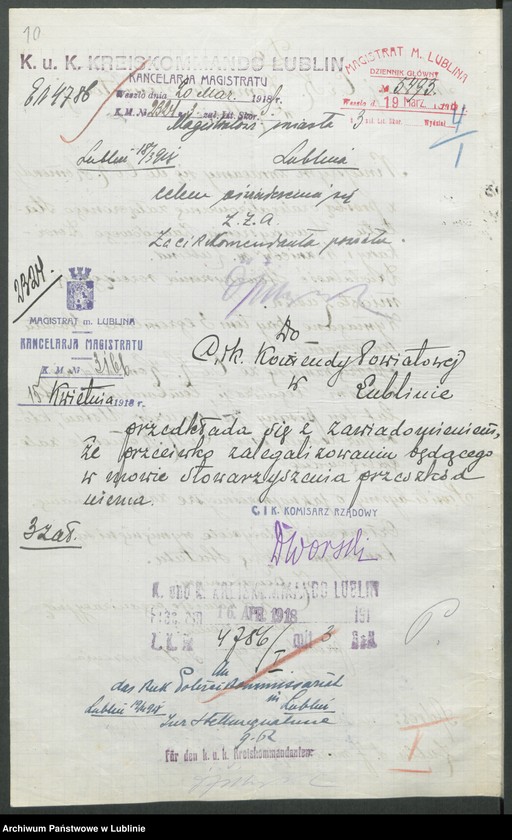 10
K. u. K. KREISKOMMANDO LUBLIN
E N 4786
KANCELARJA MAGISTRATU
Weszło dnia 20 Mar. 1918 r.
K. M. № 2321 zał. lit. Skor.
MAGISTRAT M. LUBLINA
DZIENNIK GŁÓWNY
№ 5493
Weszło d. 19 Marz. 191
3 zał. lit. Skor. Wydział
4/I
Magistratowi miasta
Lublin 18/3 918 Lublina
celem oświadczenia się
Z. Z. A.
Za c i k Komendanta powiatu.
2321.
MAGISTRAT m. LUBLINA
KANCELARJA MAGISTRATU
K. M. № 3166
15 Kwietnia 1918 r.
Do
C. i k. Komendy Powiatowej
w Lublinie
przedkłada się z zawiadomieniem,
że przeciwko zalegalizowaniu będącego
w mowie Stowarzyszenia przeszkód
niema.
C. I K. KOMISARZ RZĄDOWY
3 zał.
Dworski
K. und K. KREISKOMMANDO LUBLIN
Präs. am 16. APR. 1918 191
E. N. № 4786/I mit 3 Beil.
An
das k.u.k. Polizeikommissariat
in Lublin
Lublin
zur Stellungnahme
g. 62
Für den k. u. k. Kreiskommandanten:
I
Archiwum Państwowe w Lublinie